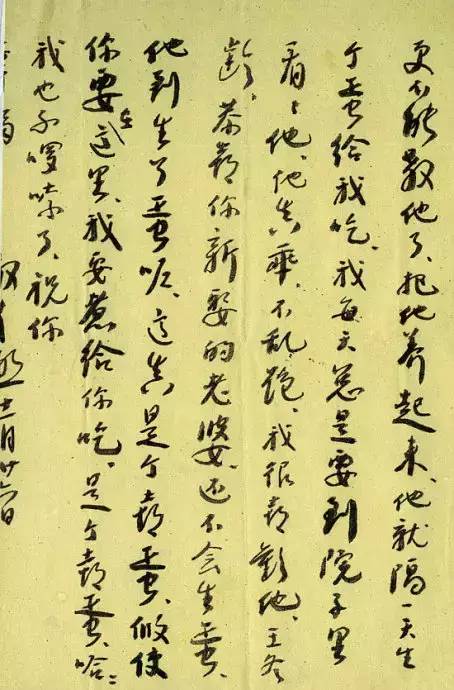 更不能殺他了、把他养起来、他就隔一天生
个蛋给我吃、我每天总是要到院子里
看〻他、他真乖、不乱跑、我很喜歡他、王冬
齡、恭喜你新娶的老婆、还不会生蛋、
他到生了蛋呢、这真是个喜蛋、使
你要在这里、我要煮给你吃、是个喜蛋、哈〻
我也不啰嗦了、祝你
福 十一月廿六日